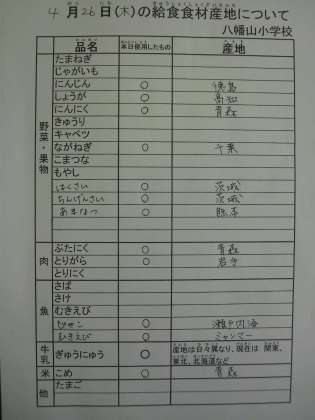 4月26日(木)の給食食材産地について
八幡山小学校
品名 本日使用したもの 産地
野菜・果物
たまねぎ
じゃがいも
にんじん ○ 徳島
しょうが ○ 高知
にんにく ○ 青森
きゅうり
キャベツ
ながねぎ ○ 千葉
こまつな
もやし
はくさい ○ 茨城
ちんげんさい ○ 茨城
あまなつ ○ 熊本
肉
ぶたにく ○ 青森
とりがら ○ 岩手
とりにく
魚
さば
さけ
むきえび
じゃこ ○ 瀬戸内海
むきえび ○ ミャンマー
牛乳 ぎゅうにゅう ○ 産地は日々異なり、現在は 関東、東北、北海道など
米 こめ ○ 青森
他 たまご